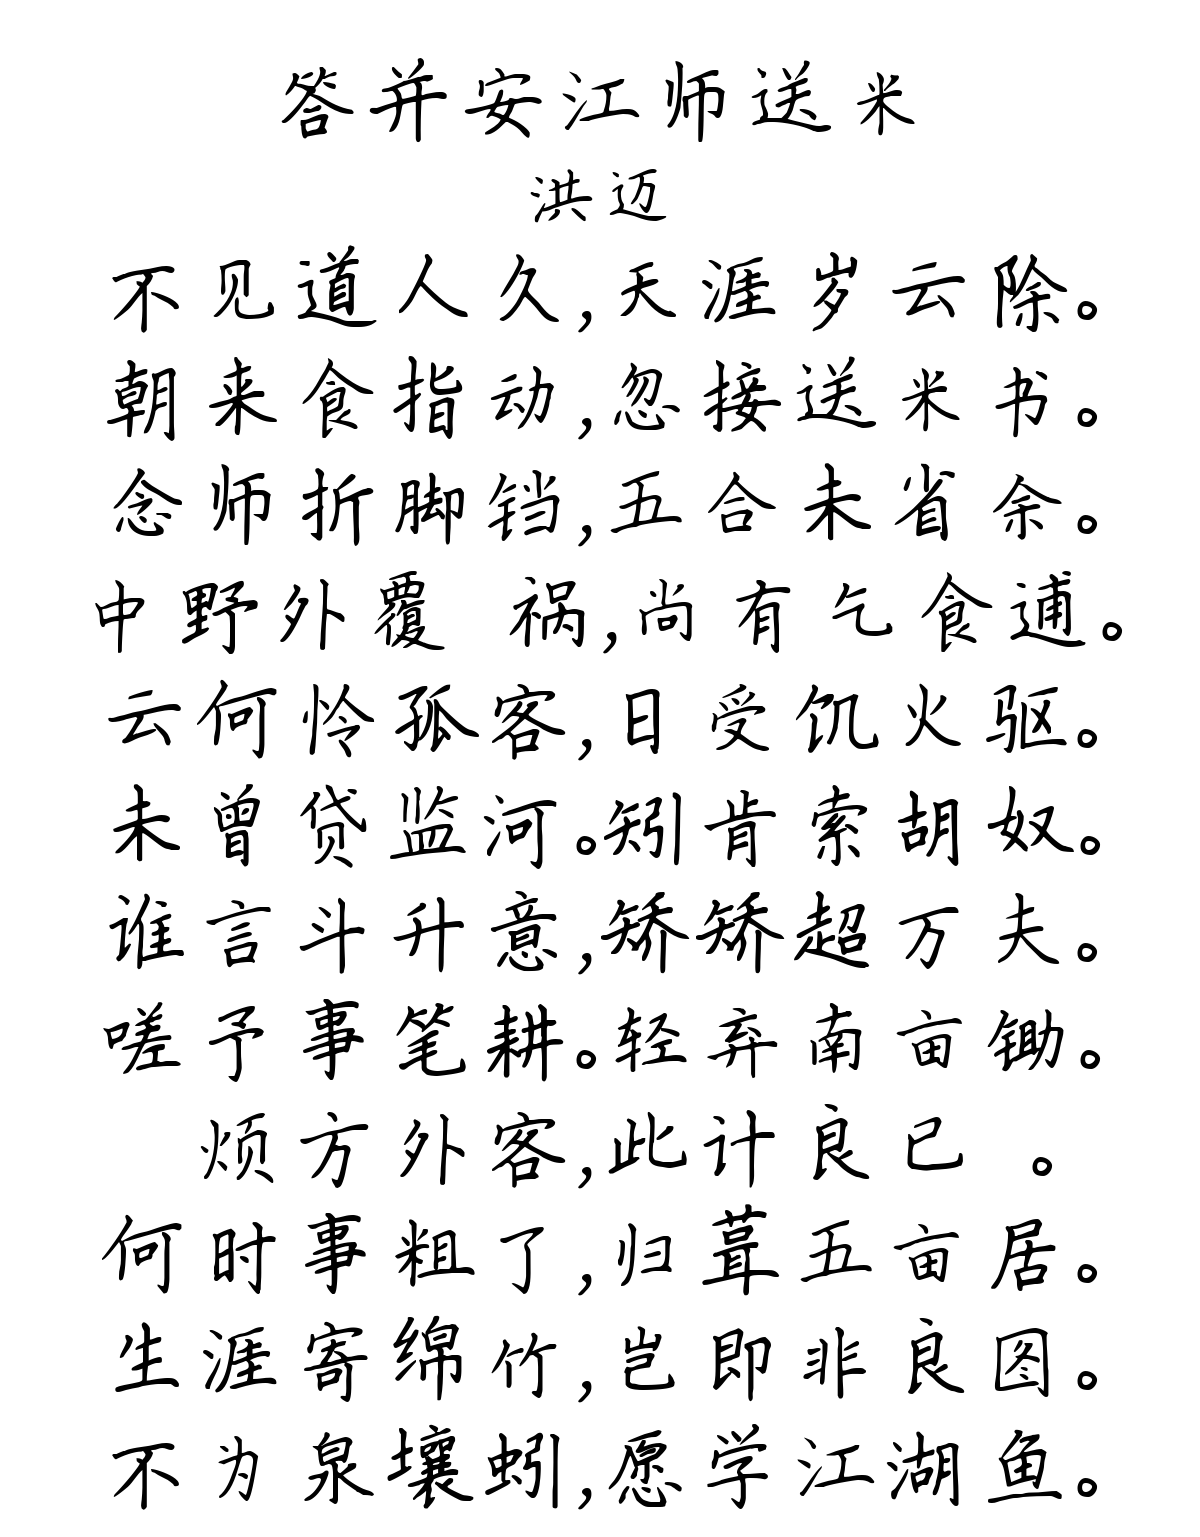 答并安江师送米
洪迈
不见道人久,天涯岁云除。
朝来食指动,忽接送米书。
念师折脚铛,五合未省余。
中野外覆 祸,尚有乞食逋。
云何怜孤客,日受饥火驱。
未曾贷监河。矧肯索胡奴。
谁言斗升意,矫矫超万夫。
嗟予事笔耕。轻弃南亩锄。
烦方外客,此计良已 。
何时事粗了,归葺五亩居。
生涯寄绵竹,岂即非良图。
不为泉壤蚓,愿学江湖鱼。